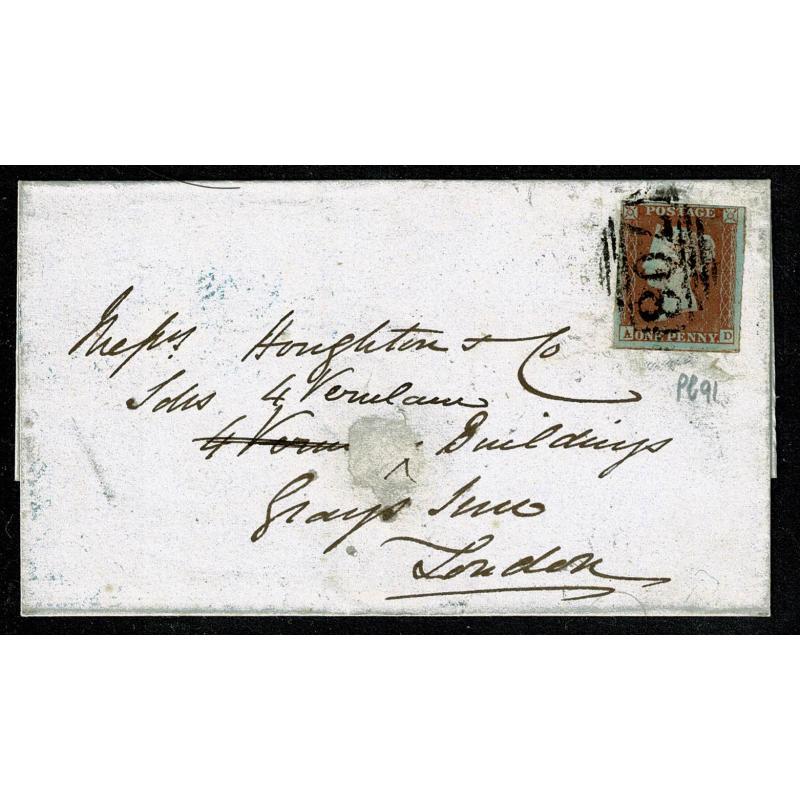 POSTAGE
A ONE PENNY D
Pl 91
Messrs Houghton & Co
Sols 4 Verulam
4 Veru Buildings
Grays Inn
London